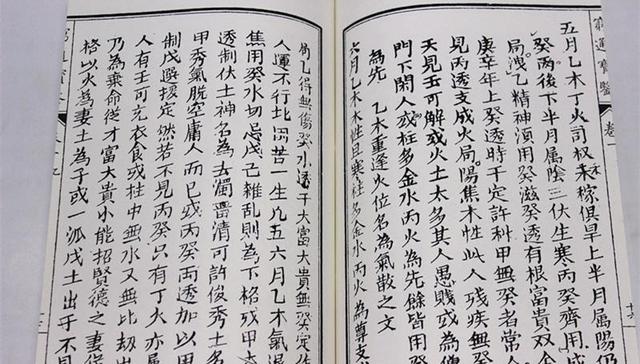 窮通寶鑒 卷一
五月乙木丁火司权禾稼俱旱上半月屬陽乃
癸丙後下半月屬陰三伏生寒丙癸齊用
局洩乙精神湏用癸滋癸透有根富貴双全
庚辛年上癸透時干定許科甲無癸者常
見丙透支成火局陽焦木性此人殘疾無癸
天見壬可解或火土太多其人愚賤或為僧
門下閑人或柱多金水丙火為先餘皆用
為先 乙木重逢火位名為氣散之文
六月乙木木性且寒柱多金水丙火為尊支
乙得無傷癸水透干大富大貴無癸
人運不行北困苦一生凡五六月乙木氣退
焦用癸水切忌戊己雜乱則為下格或甲木
透制伏土神名為去濁畱清可許俊秀土
甲秀氣脫空庸人而已或丙癸兩透加以甲
制戊選拔定然若不見丙癸只有丁火亦属
人有壬可充衣食或柱中無水又無比刼出
乃為棄命從才富大貴小能招賢德之妻
格以火為妻土為子或一派戊土出于不見